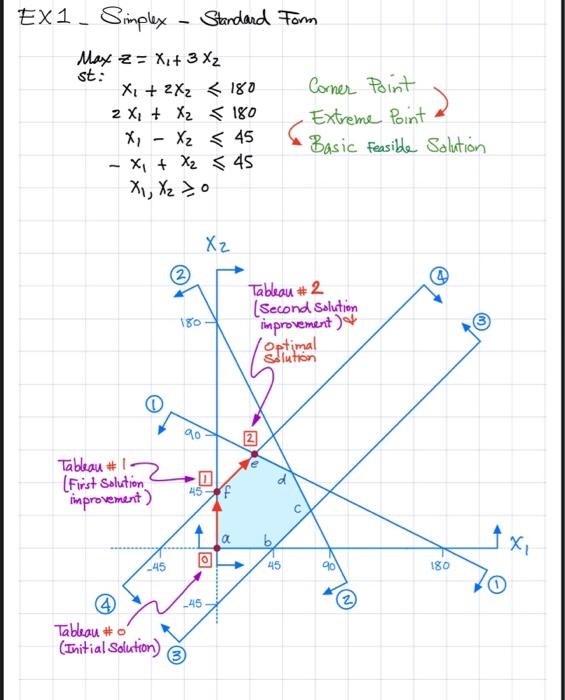 EX1 - Simplex - Standard Form
Max Z = X1 + 3 X2
st:
X1 + 2X2 ≤ 180
2 X1 + X2 ≤ 180
X1 - X2 ≤ 45
- X1 + X2 ≤ 45
X1, X2 ≥ 0
Corner Point
Extreme Point
Basic Feasible Solution
X2
2
Tableau # 2
(Second Solution
improvement) &
Optimal
Solution
4
3
180
1
90
2
e
Tableau # 1
(First Solution
improvement)
1
45
f
d
c
a
b
X1
-45
0
45
90
180
1
4
-45
2
Tableau # 0
(Initial Solution)
3